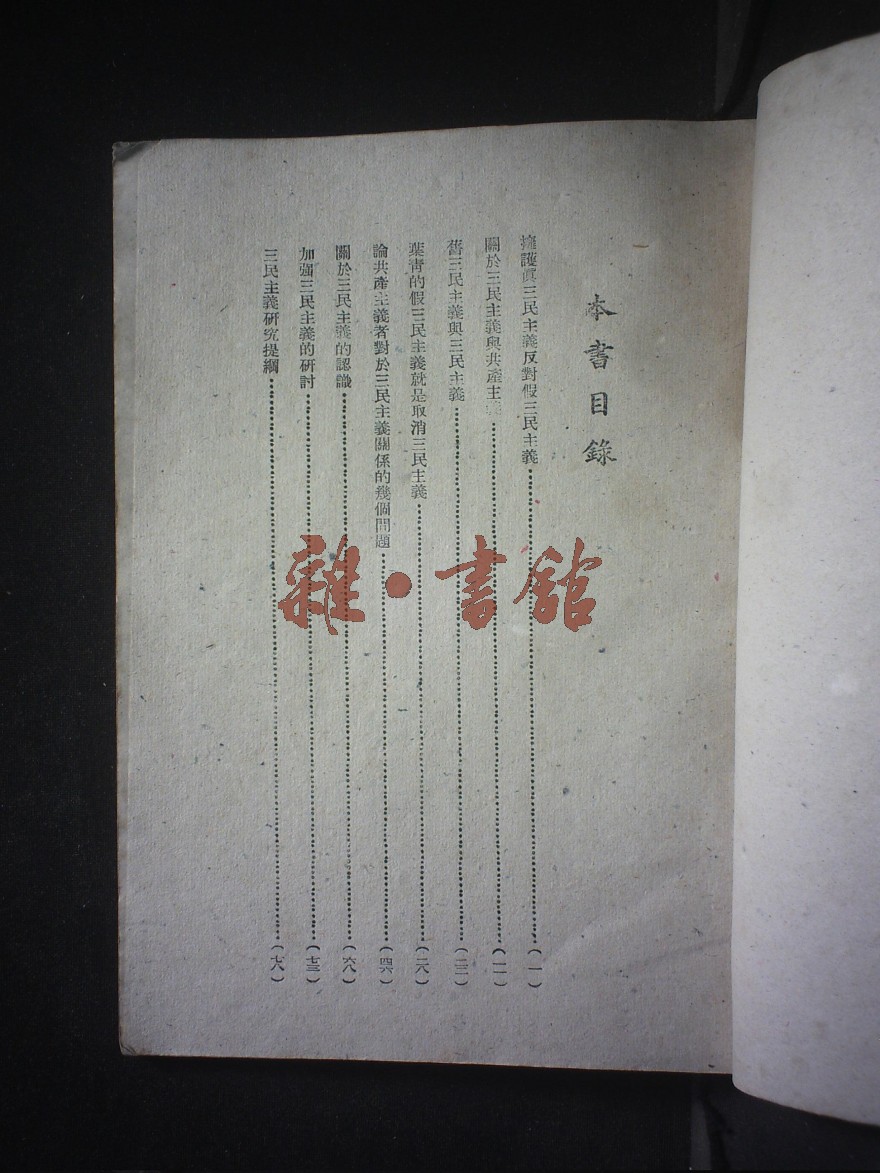 本書目錄
擁護眞三民主義反對假三民主義……(一)
關於三民主義與共產主義……(一一)
舊三民主義與三民主義……(二三)
葉青的假三民主義就是取消三民主義……(二八)
論共產主義者對於三民主義關係的幾個問題……(四六)
關於三民主義的認識……(六八)
加强三民主義的研討……(七三)
三民主義研究提綱……(七八)
雜·書館